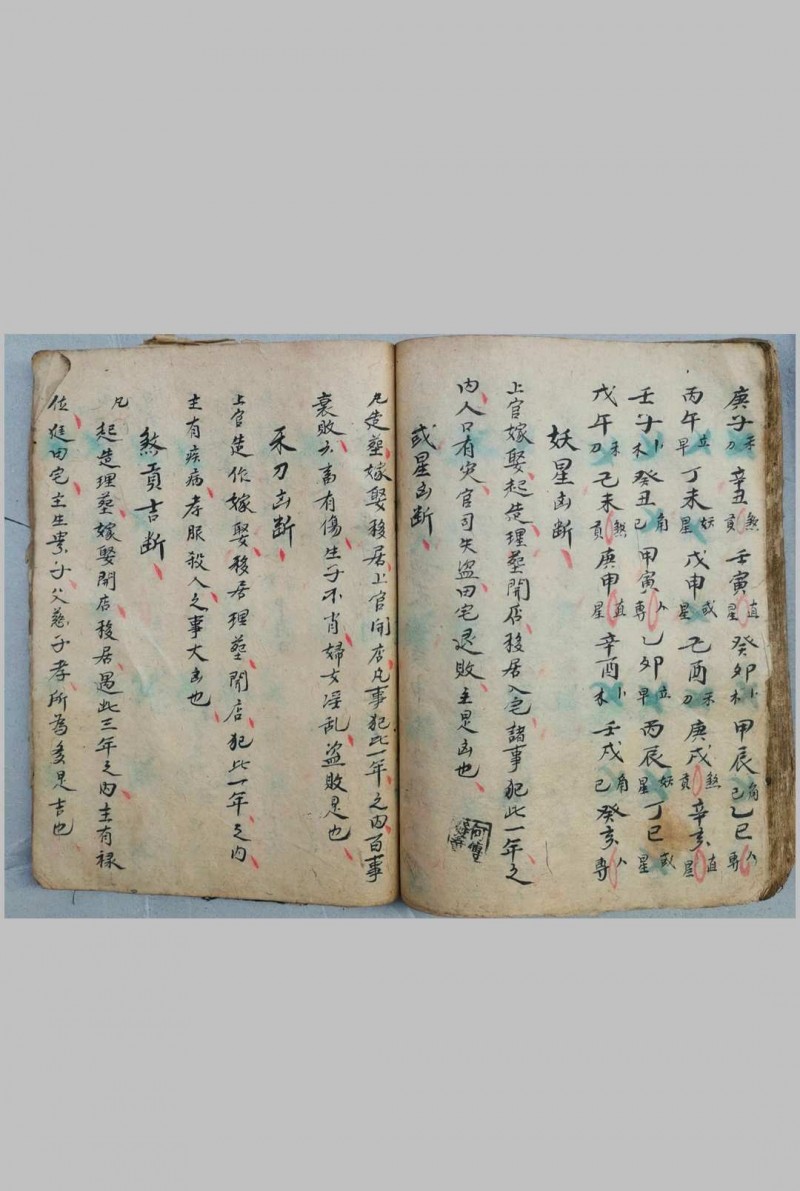 庚子禾刀辛丑煞貢壬寅直星癸卯卜木甲辰角己乙巳人專
丙午立早丁未妖星戊申或星己酉禾刀庚戌煞貢辛亥直星
壬子卜木癸丑角己甲寅人專乙卯立早丙辰妖星丁巳或星
戊午禾刀己未煞貢庚申直星辛酉卜木壬戌角己癸亥人專
妖星凶断
上官嫁娶起造理塟開店移居入宅諸事犯此一年之
内人口有灾官司失盗田宅退敗主是凶也
或星凶断
凡造塟嫁娶移居上官開店凡事犯此一年之内百事
衰敗六畜有傷生子不肖婦女淫乱盗敗是也
禾刀凶断
上官造作嫁娶移居理塟開店犯此一年之内
主有疾病孝服殺人之事大凶也
煞貢吉断
凡起造理塟嫁娶開店移居遇此三年之内主有禄
位進田宅主生貴子父慈子孝所為多是吉也